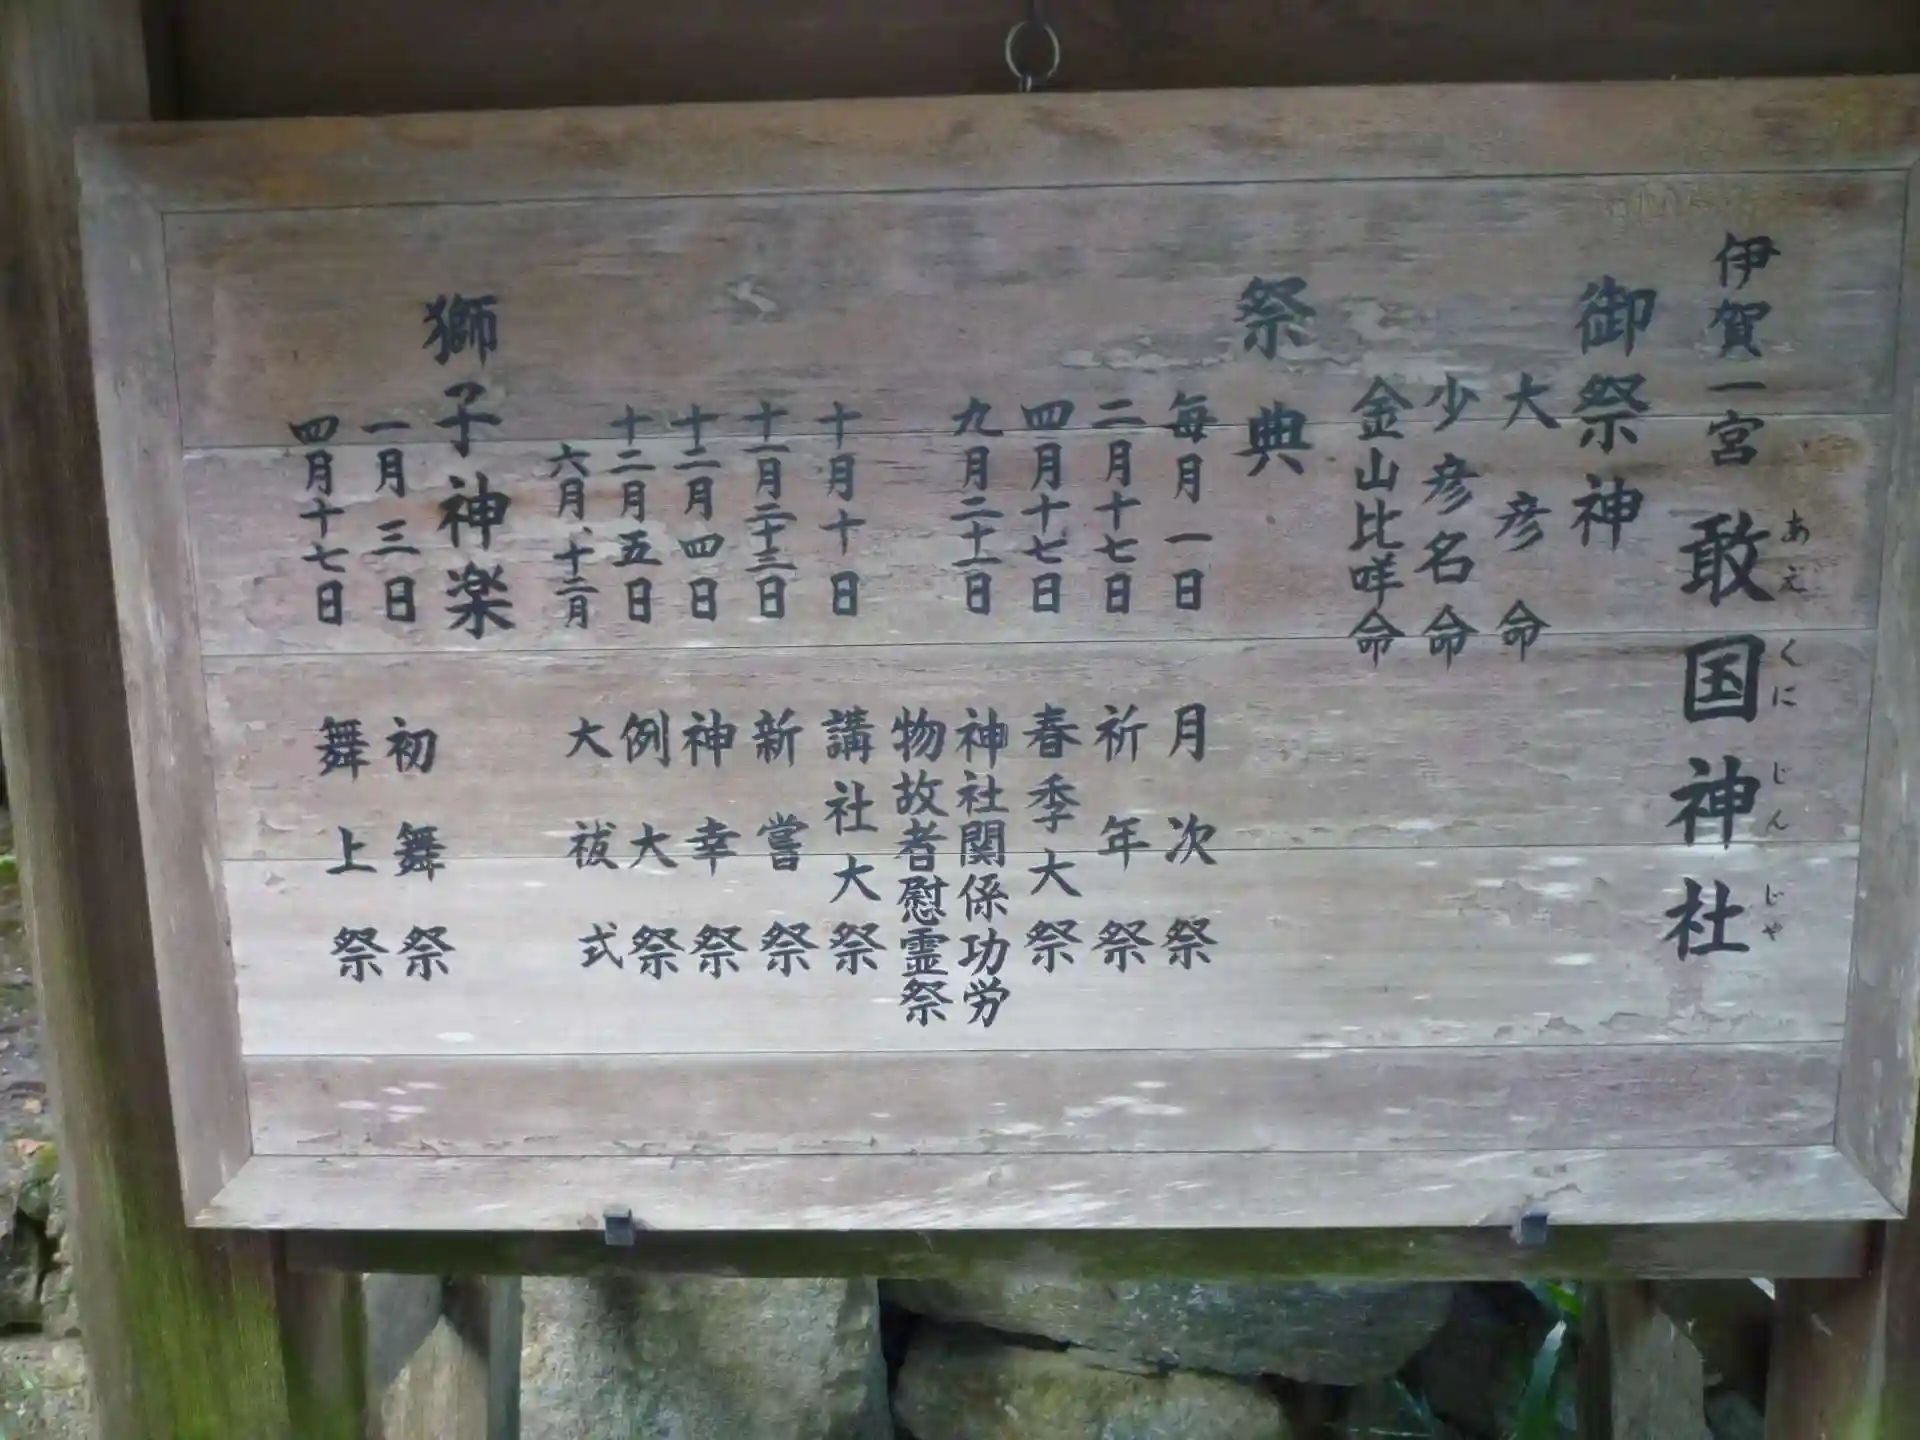 伊賀一宮 敢国神社
あえくにじんじゃ
御祭神
大彦命
少彦名命
金山比咩命
祭典
毎月一日 月次祭
二月十七日 祈年祭
四月十七日 春季大祭
九月二十一日 神社関係功労
物故者慰霊祭
十月十日 講社大祭
十一月二十三日 新嘗祭
十二月四日 神幸祭
十二月五日 例大祭
六月、十二月 大祓式
獅子神楽
一月三日 初舞祭
四月十七日 舞上祭